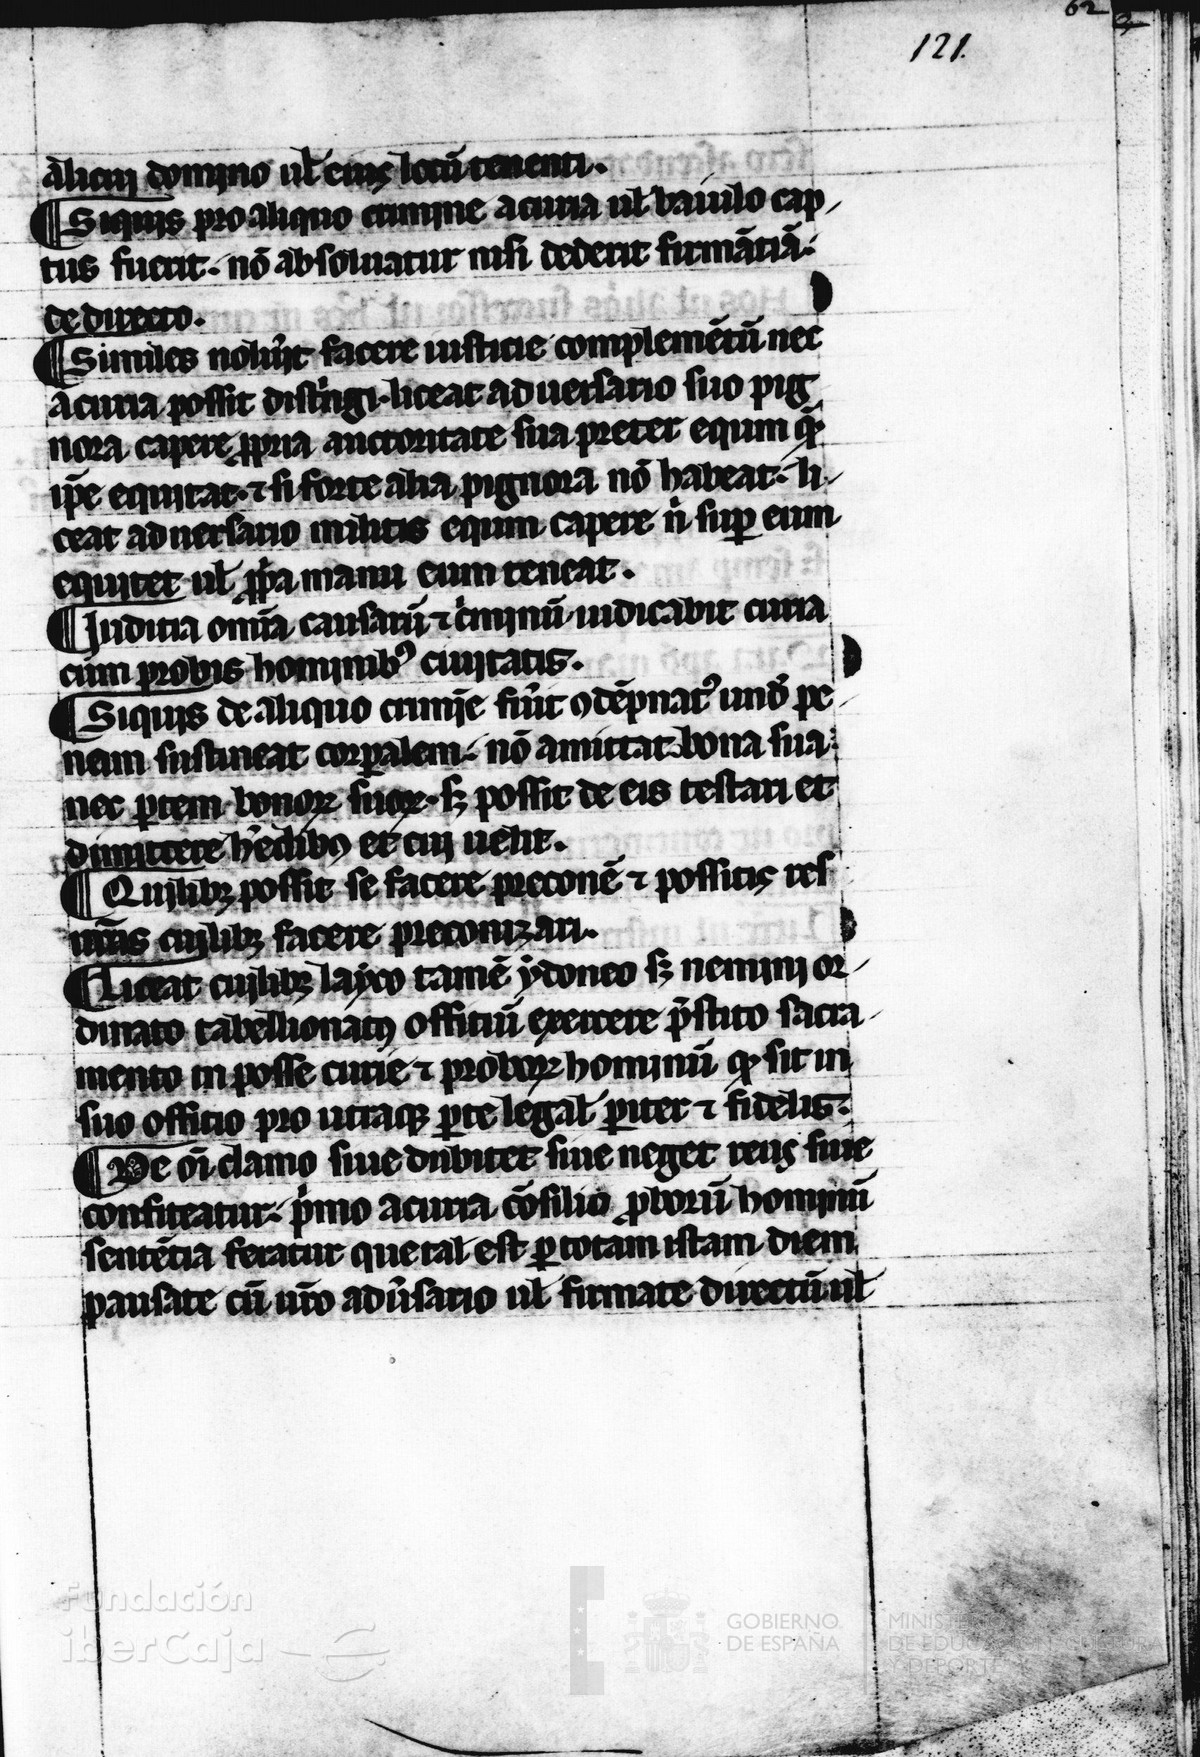 62
121.
alicui domino ul̃ eius locũ tenenti.
¶ Siquis pro aliquo crimine a curia ul̃ baiulo cap
tus fuerit. nõ absoluatur nisi dederit firmãciã.
de directo.
¶ Similes noluit facere iusticie complemẽtũ nec
a curia possit distingi. liceat aduersario suo pig
nora capere ppria auctoritate sua preter equm q̃
ip̃e equitat. ⁊ si forte alia pignora nõ habeat. li
ceat aduersario militis equm capere ñ sup eum
equitet ul̃ ppa manu eum teneat.
¶ Iudicia om̃a causarũ ⁊ c̃minũ iudicabit curia
cum probis hominib᷒ ciuitatis.
¶ Siquis de aliquo crimĩe fũit ꝯdẽpnat᷒ unde pe
nam sustineat corpalem. nõ amittat bona sua
nec ptem bonoꝝ suoꝝ. sꝫ possit de eis testari et
dimittere hẽdibꝯ et cui uelit.
¶ Quilibꝫ possit se facere preconẽ ⁊ possitis res
ur̃as cuilibꝫ facere preconizari.
¶ Liceat cuilibꝫ layco tamẽ ydoneo sꝫ nemini or
dinato tabellionatus officiũ exercere p̃stito sacra
mento in posse curie ⁊ proboꝝ hominũ q̃ sit in
suo officio pro utraqꝫ pte legal̃ piter ⁊ fidelis.
¶ De om̃i clamo siue dubitet siue neget reus siue
confiteatur. p̃mo a curia cõsilio proborũ hominũ
sentẽtia feratur que tal̃ est p totam istam diem
pausate cũ ur̃o adũsario ul̃ firmate directũ ul̃
Fundación
iberCaja
GOBIERNO
DE ESPAÑA
MINISTERIO
DE EDUCACIÓN, CULTURA
Y DEPORTE